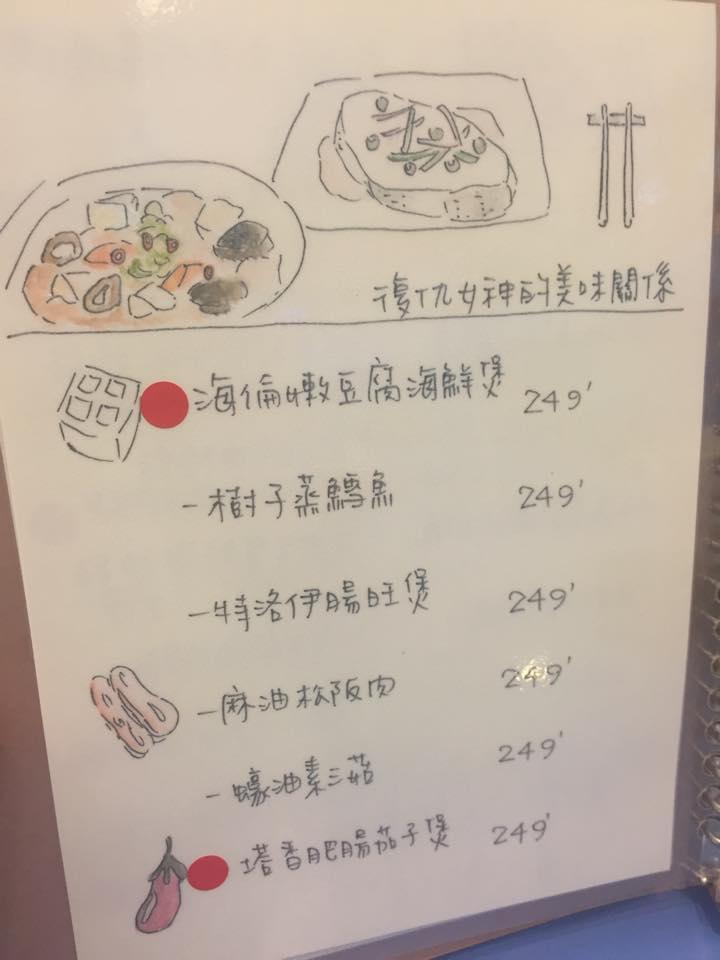 復仇女神的美味關係
海倫嫩豆腐海鮮煲 249'
－樹子蒸鱈魚 249'
－特洛伊腸旺煲 249'
－麻油松阪肉 249'
－蠔油素三菇 249'
塔香肥腸茄子煲 249'